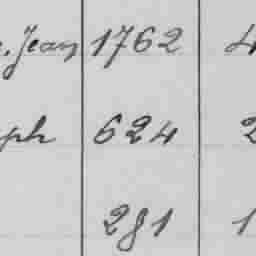 Jean 1762 4
ph 624 2
281 1